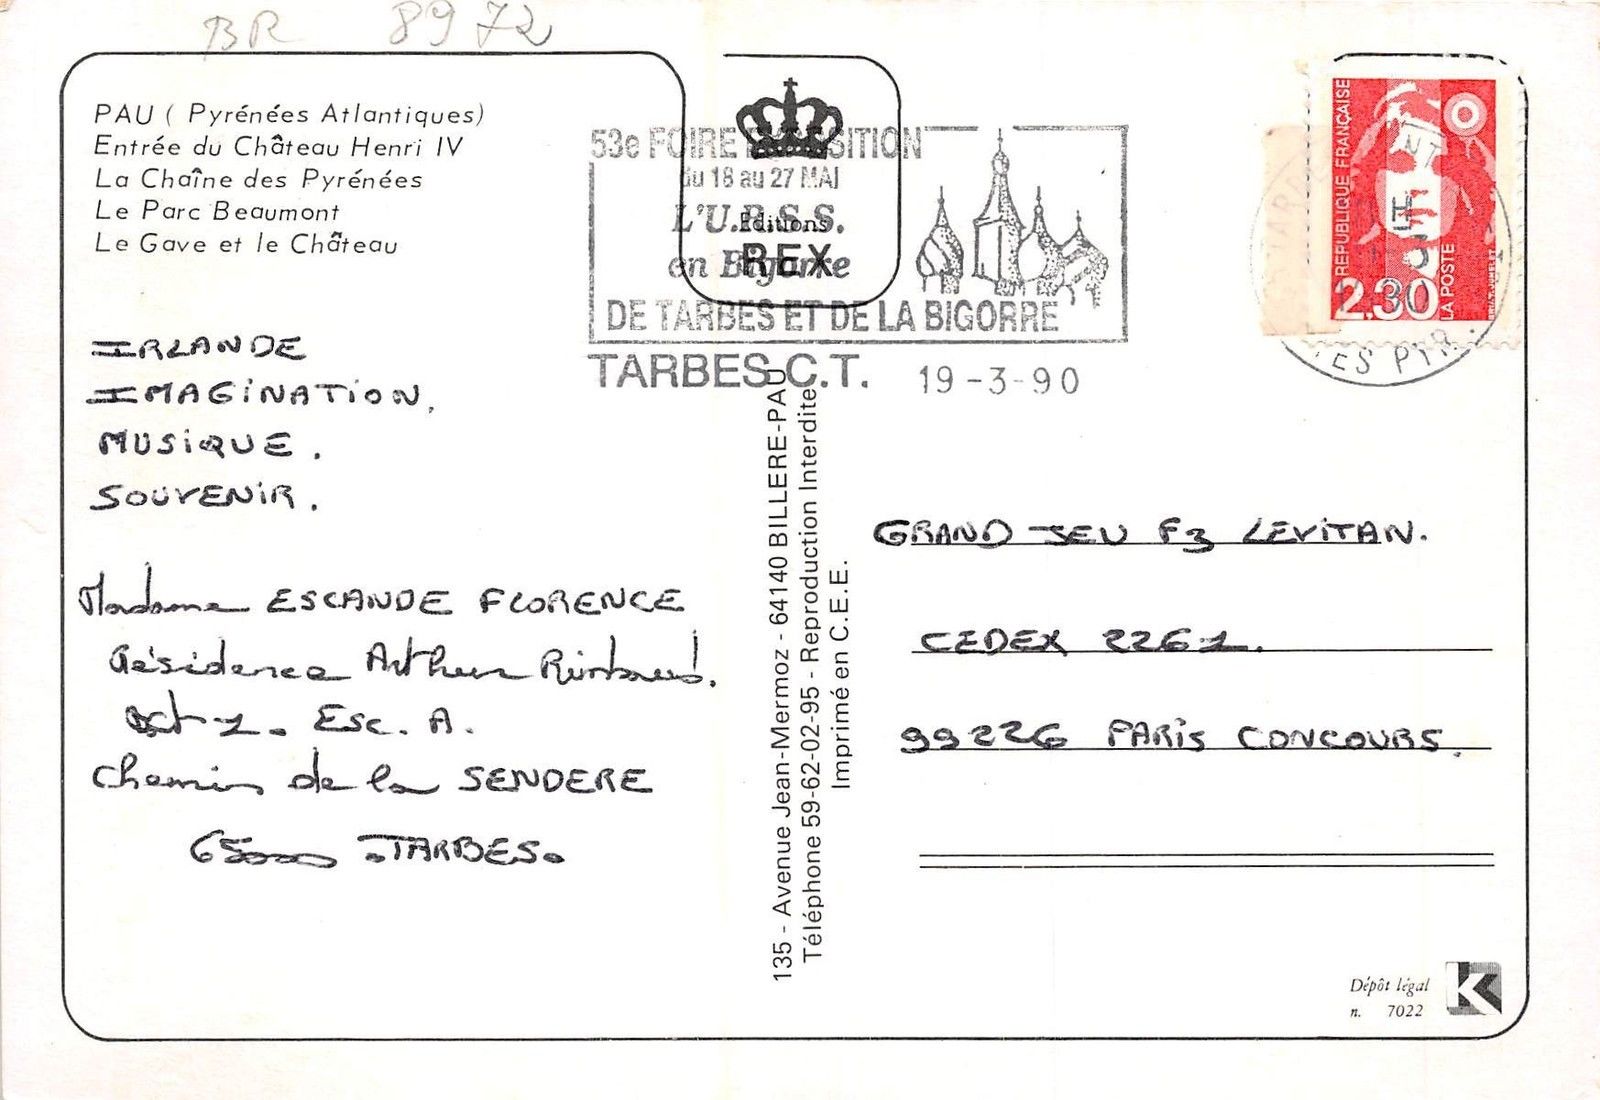 BR 8972
PAU ( Pyrénées Atlantiques)
Entrée du Château Henri IV
La Chaîne des Pyrénées
Le Parc Beaumont
Le Gave et le Château
IRLANDE
IMAGINATION,
MUSIQUE.
SOUVENIR.
Madame ESCANDE FLORENCE
Résidence Arthur Rimbaud.
1. Esc. A.
Chemin de la SENDERE
65000 TARBES.
53e FOIRE EXPOSITION
du 18 au 27 MAI
L'U.R.S.S.
en Bigorre
DE TARBES ET DE LA BIGORRE
TARBES C.T. 19-3-90
Editions
REX
135 - Avenue Jean-Mermoz - 64140 BILLERE-PAU
Téléphone 59-62-02-95 - Reproduction Interdite
Imprimé en C.E.E.
REPUBLIQUE FRANÇAISE
2.30
LA POSTE
ES PYR.
GRAND JEU F3 LEVITAN.
CEDEX 2261.
99226 PARIS CONCOURS.
Dépôt légal
n. 7022
K